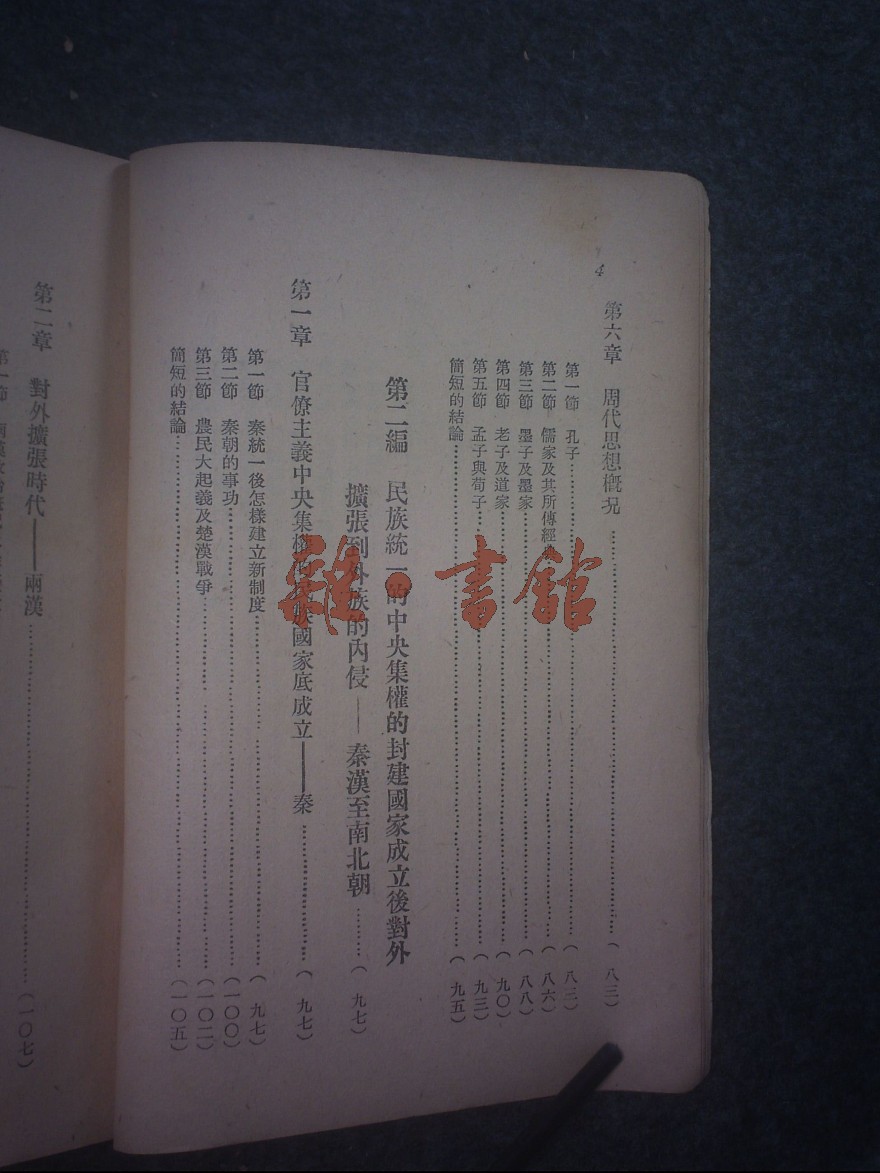 4
第六章 周代思想概況……(八三)
第一節 孔子……(八三)
第二節 儒家及其所傳經……(八六)
第三節 墨子及墨家……(八八)
第四節 老子及道家……(九〇)
第五節 孟子與荀子……(九三)
簡短的結論……(九五)
第二編 民族統一的中央集權的封建國家成立後對外
擴張到外族的內侵——秦漢至南北朝……(九七)
第一章 官僚主義中央集權的民族國家底成立——秦……(九七)
第一節 秦統一後怎樣建立新制度……(九七)
第二節 秦朝的事功……(一〇〇)
第三節 農民大起義及楚漢戰爭……(一〇二)
簡短的結論……(一〇五)
第二章 對外擴張時代——兩漢……(一〇七)
第一節
雜·書館